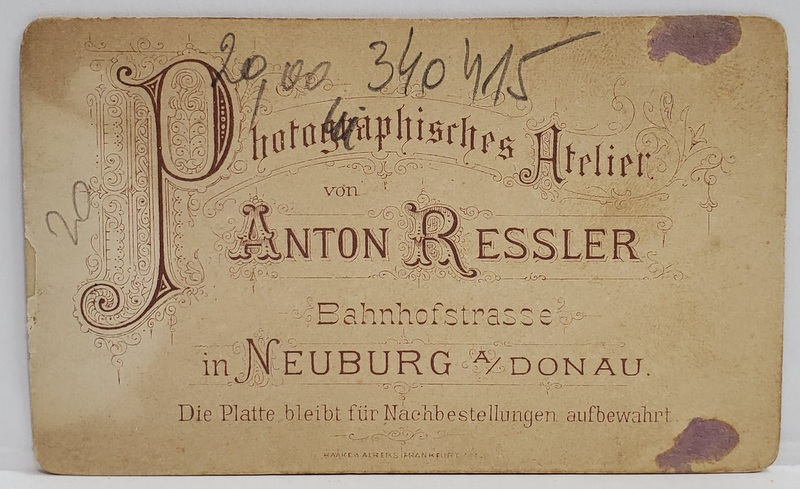 20,00 340415
20
Photographisches Atelier
von
ANTON RESSLER
Bahnhofstrasse
in NEUBURG A/DONAU.
Die Platte bleibt für Nachbestellungen aufbewahrt.
HAAKE & ALBERS FRANKFURT